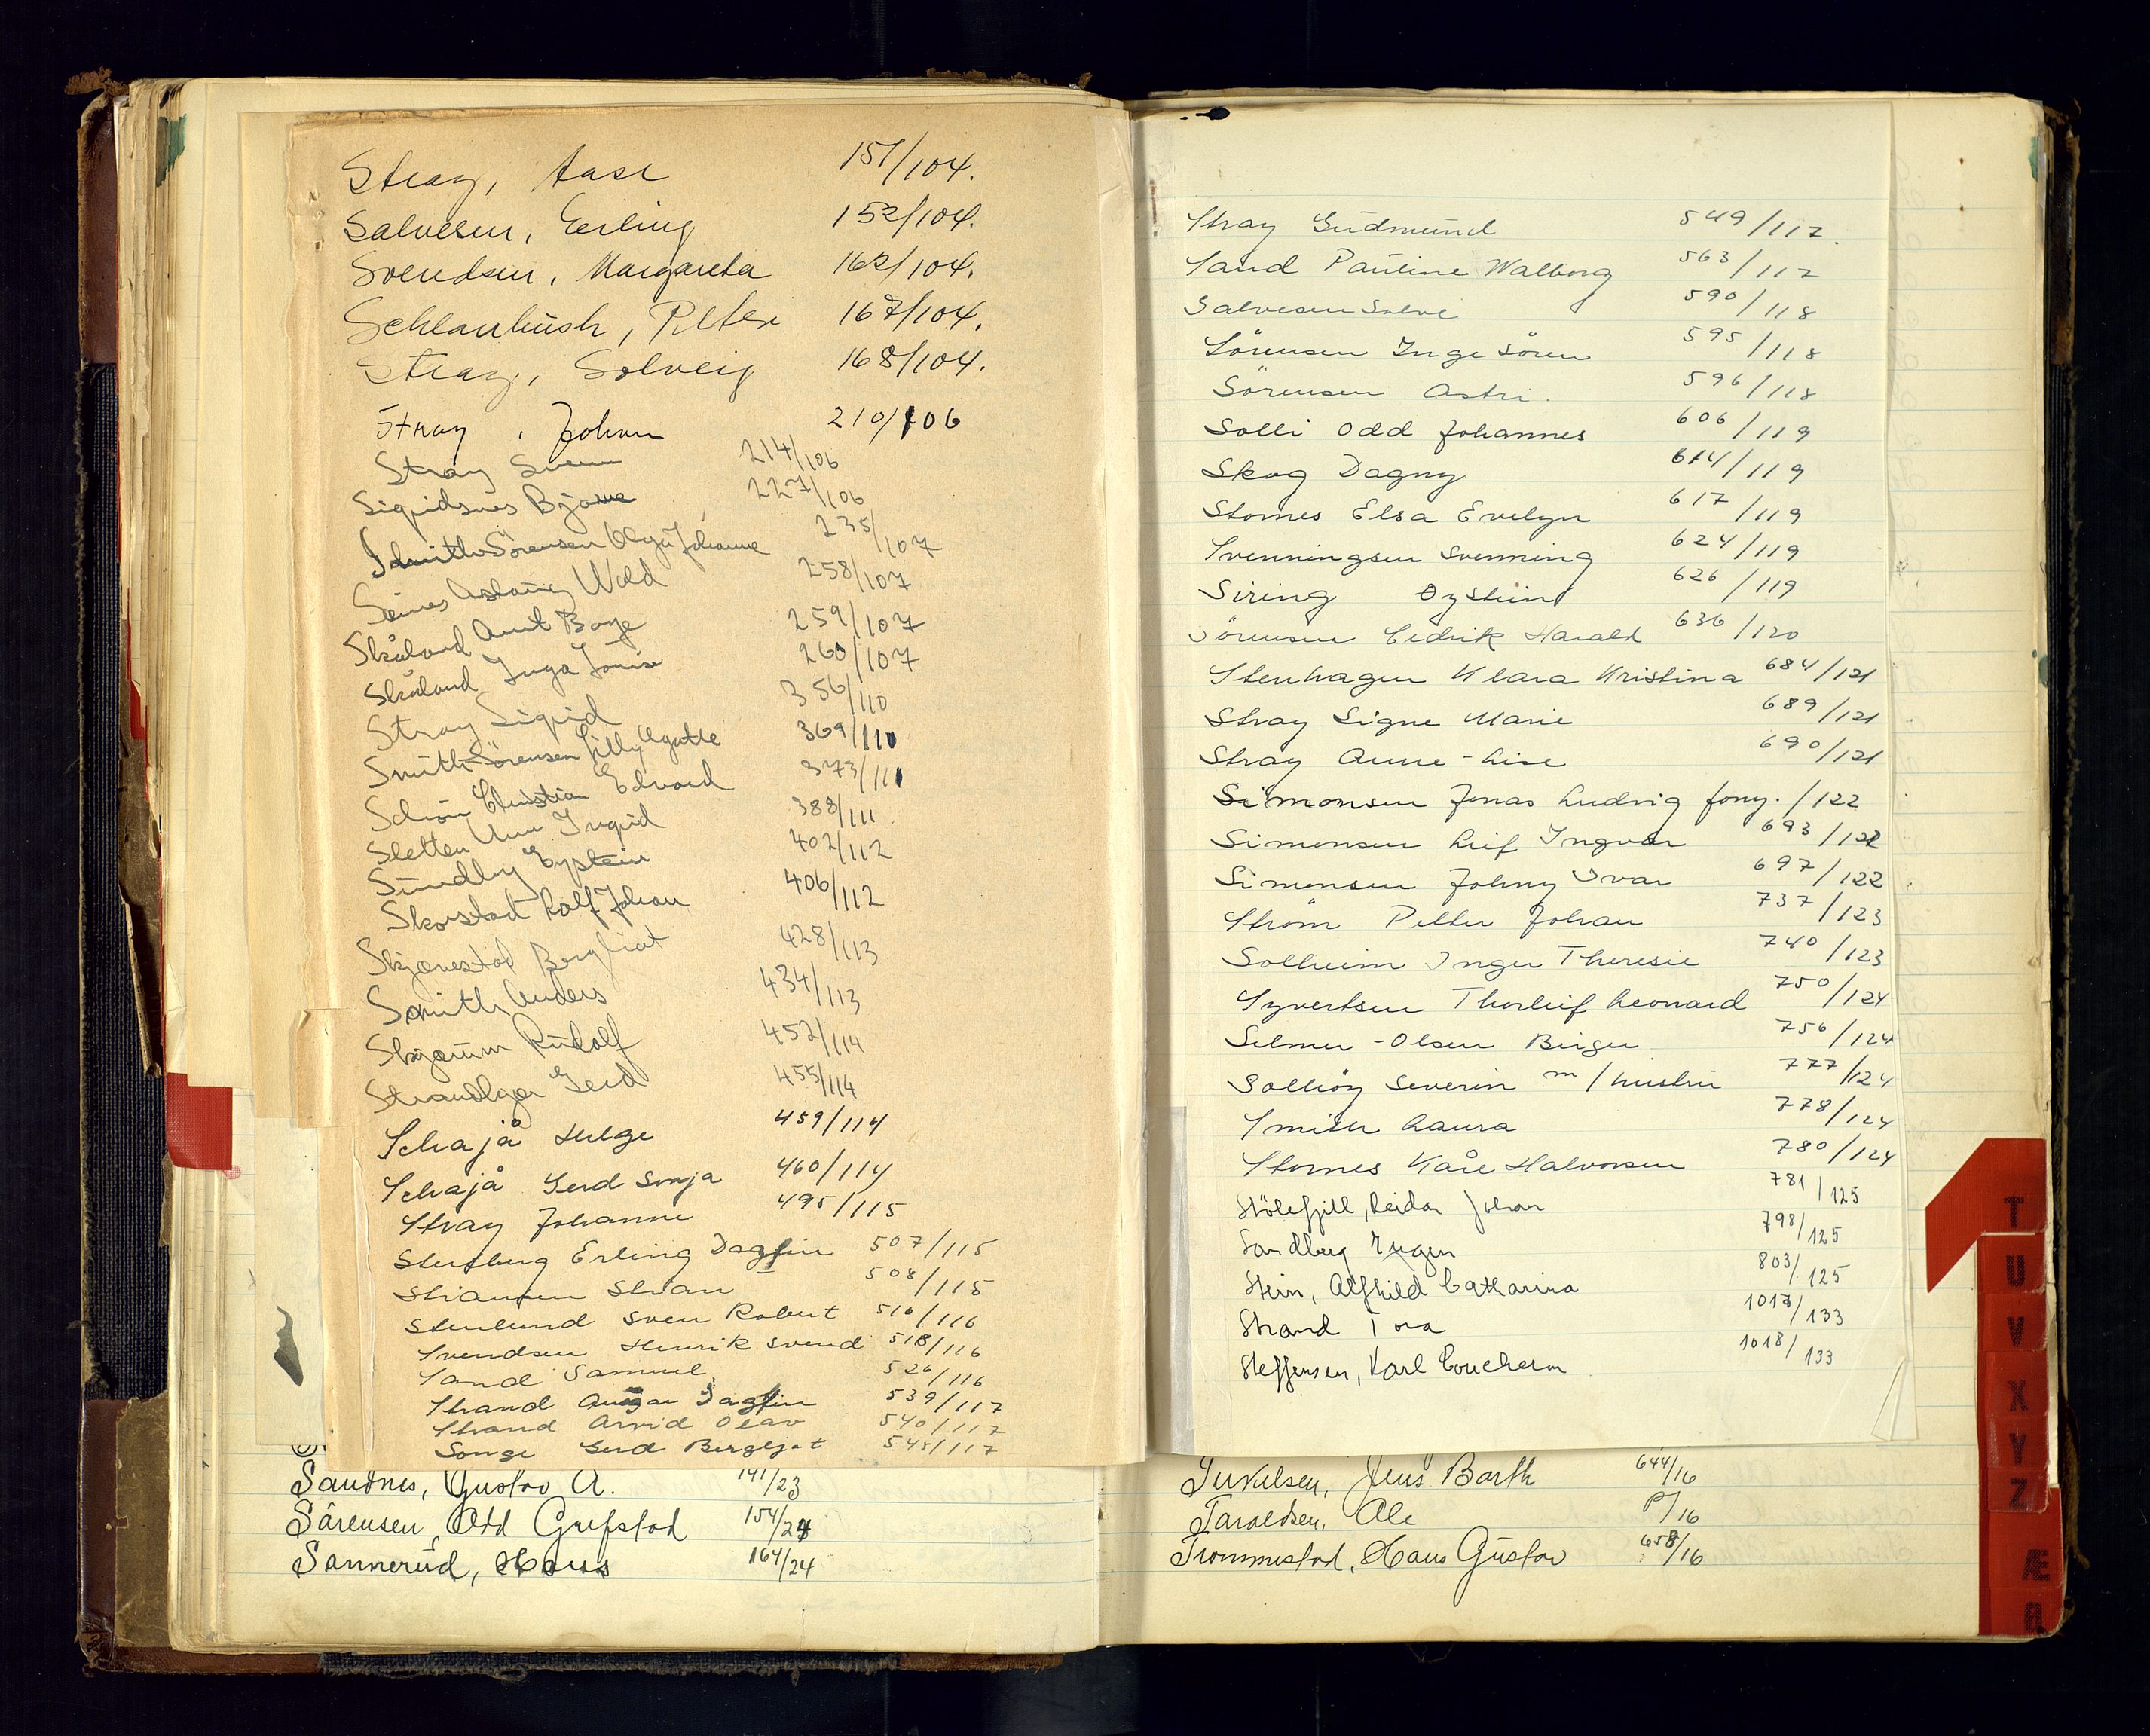 Stray, Aase 151/104.
Salvesen, Erling 152/104.
Svendsen, Margareta 162/104.
Schlanbusch, Petter 167/104.
Stray, Solveig 168/104.
Stray, Johan 210/106
Stray Svenn 214/106
Sigridsnes Bjarne 227/106
Smith-Sörensen Olga Johanne 235/107
Seines Aslaug Wold 258/107
Skåland Anut Boye 259/107
Skåland Inga Lovise 260/107
Stray Sigrid 356/110
Smith-Sörensen Lilly Agathe 369/110
Schön Christian Edvard 373/111
Sletten Unn Ingrid 388/111
Sundby Eystein 402/112
Skorstad Rolf Johan 406/112
Skjønestad Bergliot 428/113
Smith Anders 434/113
Skjørum Rudolf 452/114
Gerd 455/114
Schajå Helge 459/114
Schajå Gerd Sonja 460/114
Stray Johanne 495/115
Stensberg Erling Dagfin 507/115
Stiansen Stian 508/115
Stenlund Sven Robert 510/116
Svendsen Henrik Svend 518/116
Sand Samuel 526/116
Strand Ansgar Dagfin 539/117
Strand Arvid Olav 540/117
Songe Gerd Bergljot 545/117
Sandnes, Gustav A. 141/23
Sörensen, Odd Grefstad 154/24
Sannerud, Hans 164/24
Stray Gudmund 549/117.
Sand Pauline Walborg 563/117
Salvesen Salve 590/118
Sörensen Inge Sören 595/118
Sörensen Astri. 596/118
Solli Odd Johannes 606/119
Skog Dagny 614/119
Stornes Elsa Evelyn 617/119
Svenningsen Svenning 624/119
Siring Oystein 626/119
Sörensen Cedrik Harald 636/120
Stenhagen Klara Kristina 684/121
Stray Signe Marie 689/121
Stray Anne-Lise 690/121
Simonsen Jonas Ludvig fony. /122
Simonsen Leif Ingvar 693/122
Simonsen Johny Ivar 697/122
Ström Petter Johan 737/123
Solheim Inger Theresie 740/123
Syvertsen Thorleif Leonard 750/124
Selmer-Olsen Birger 756/124
Solhöy Severin m/hustru 777/124
Smiter Laura 778/124
Stornes Kåre Halvorsen 780/124
Stölefjell, Reidar Johan 781/125
Sandberg Eugen 798/125
Stein, Alfhild Catharina 803/125
Strand Tora 1017/133
Steffensen, Karl Coucheron 1018/133
Jens Barth 644/16
Taraldsen, Ale P/16
Trommestad, Hans Gustav 658/16
T
U
V
X
Y
Z
Æ
Ø